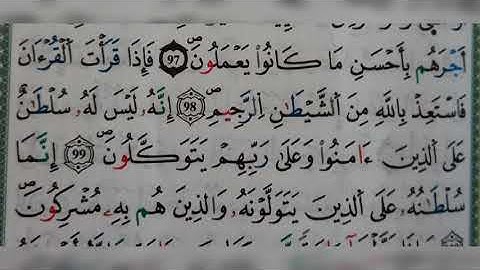 أَجْرَهُم بِأَحْسَنِ مَا كَانُواْ يَعْمَلُونَۖ 97 فَإِذَا قَرَأْتَ اَلْقُرْءَانَ
فَاسْتَعِذْ بِاللَّهِ مِنَ اَلشَّيْطَٰنِ اِلرَّجِيمِۖ 98 إِنَّهُۥ لَيْسَ لَهُۥ سُلْطَٰنٌ
عَلَى اَلذِينَ ءَامَنُواْ وَعَلَىٰ رَبِّهِمْ يَتَوَكَّلُونَۖ 99 إِنَّمَا
سُلْطَٰنُهُۥ عَلَى اَلذِينَ يَتَوَلَّوْنَهُۥ وَالذِينَ هُم بِهِۦ مُشْرِكُونَۖ